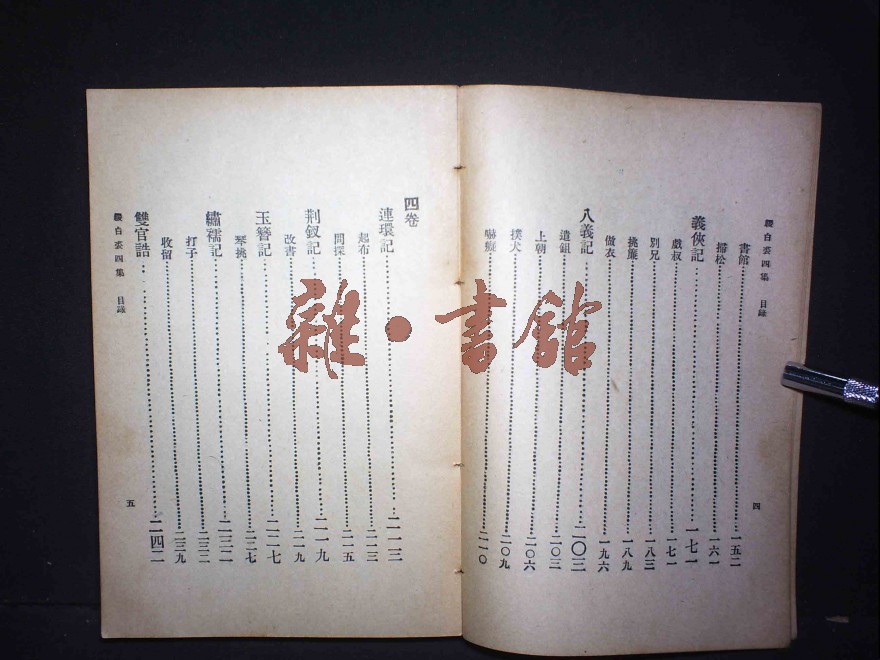 綴白裘四集　目錄
書館…一五二
掃松…一六一
義俠記…一七一
戲叔…一七一
別兄…一八三
挑簾…一八九
做衣…一九六
八義記…二〇三
遣鉏…二〇三
上朝…二〇六
撲犬…二〇九
嚇痴…二一〇
四
四卷
連環記…二一三
起布…二一三
問探…二一五
荆釵記…二一九
改書…二一九
玉簪記…二二七
琴挑…二二七
繡襦記…二三二
打子…二三二
收留…二三九
雙官誥…二四二
綴白裘四集　目錄
五
雜·書館